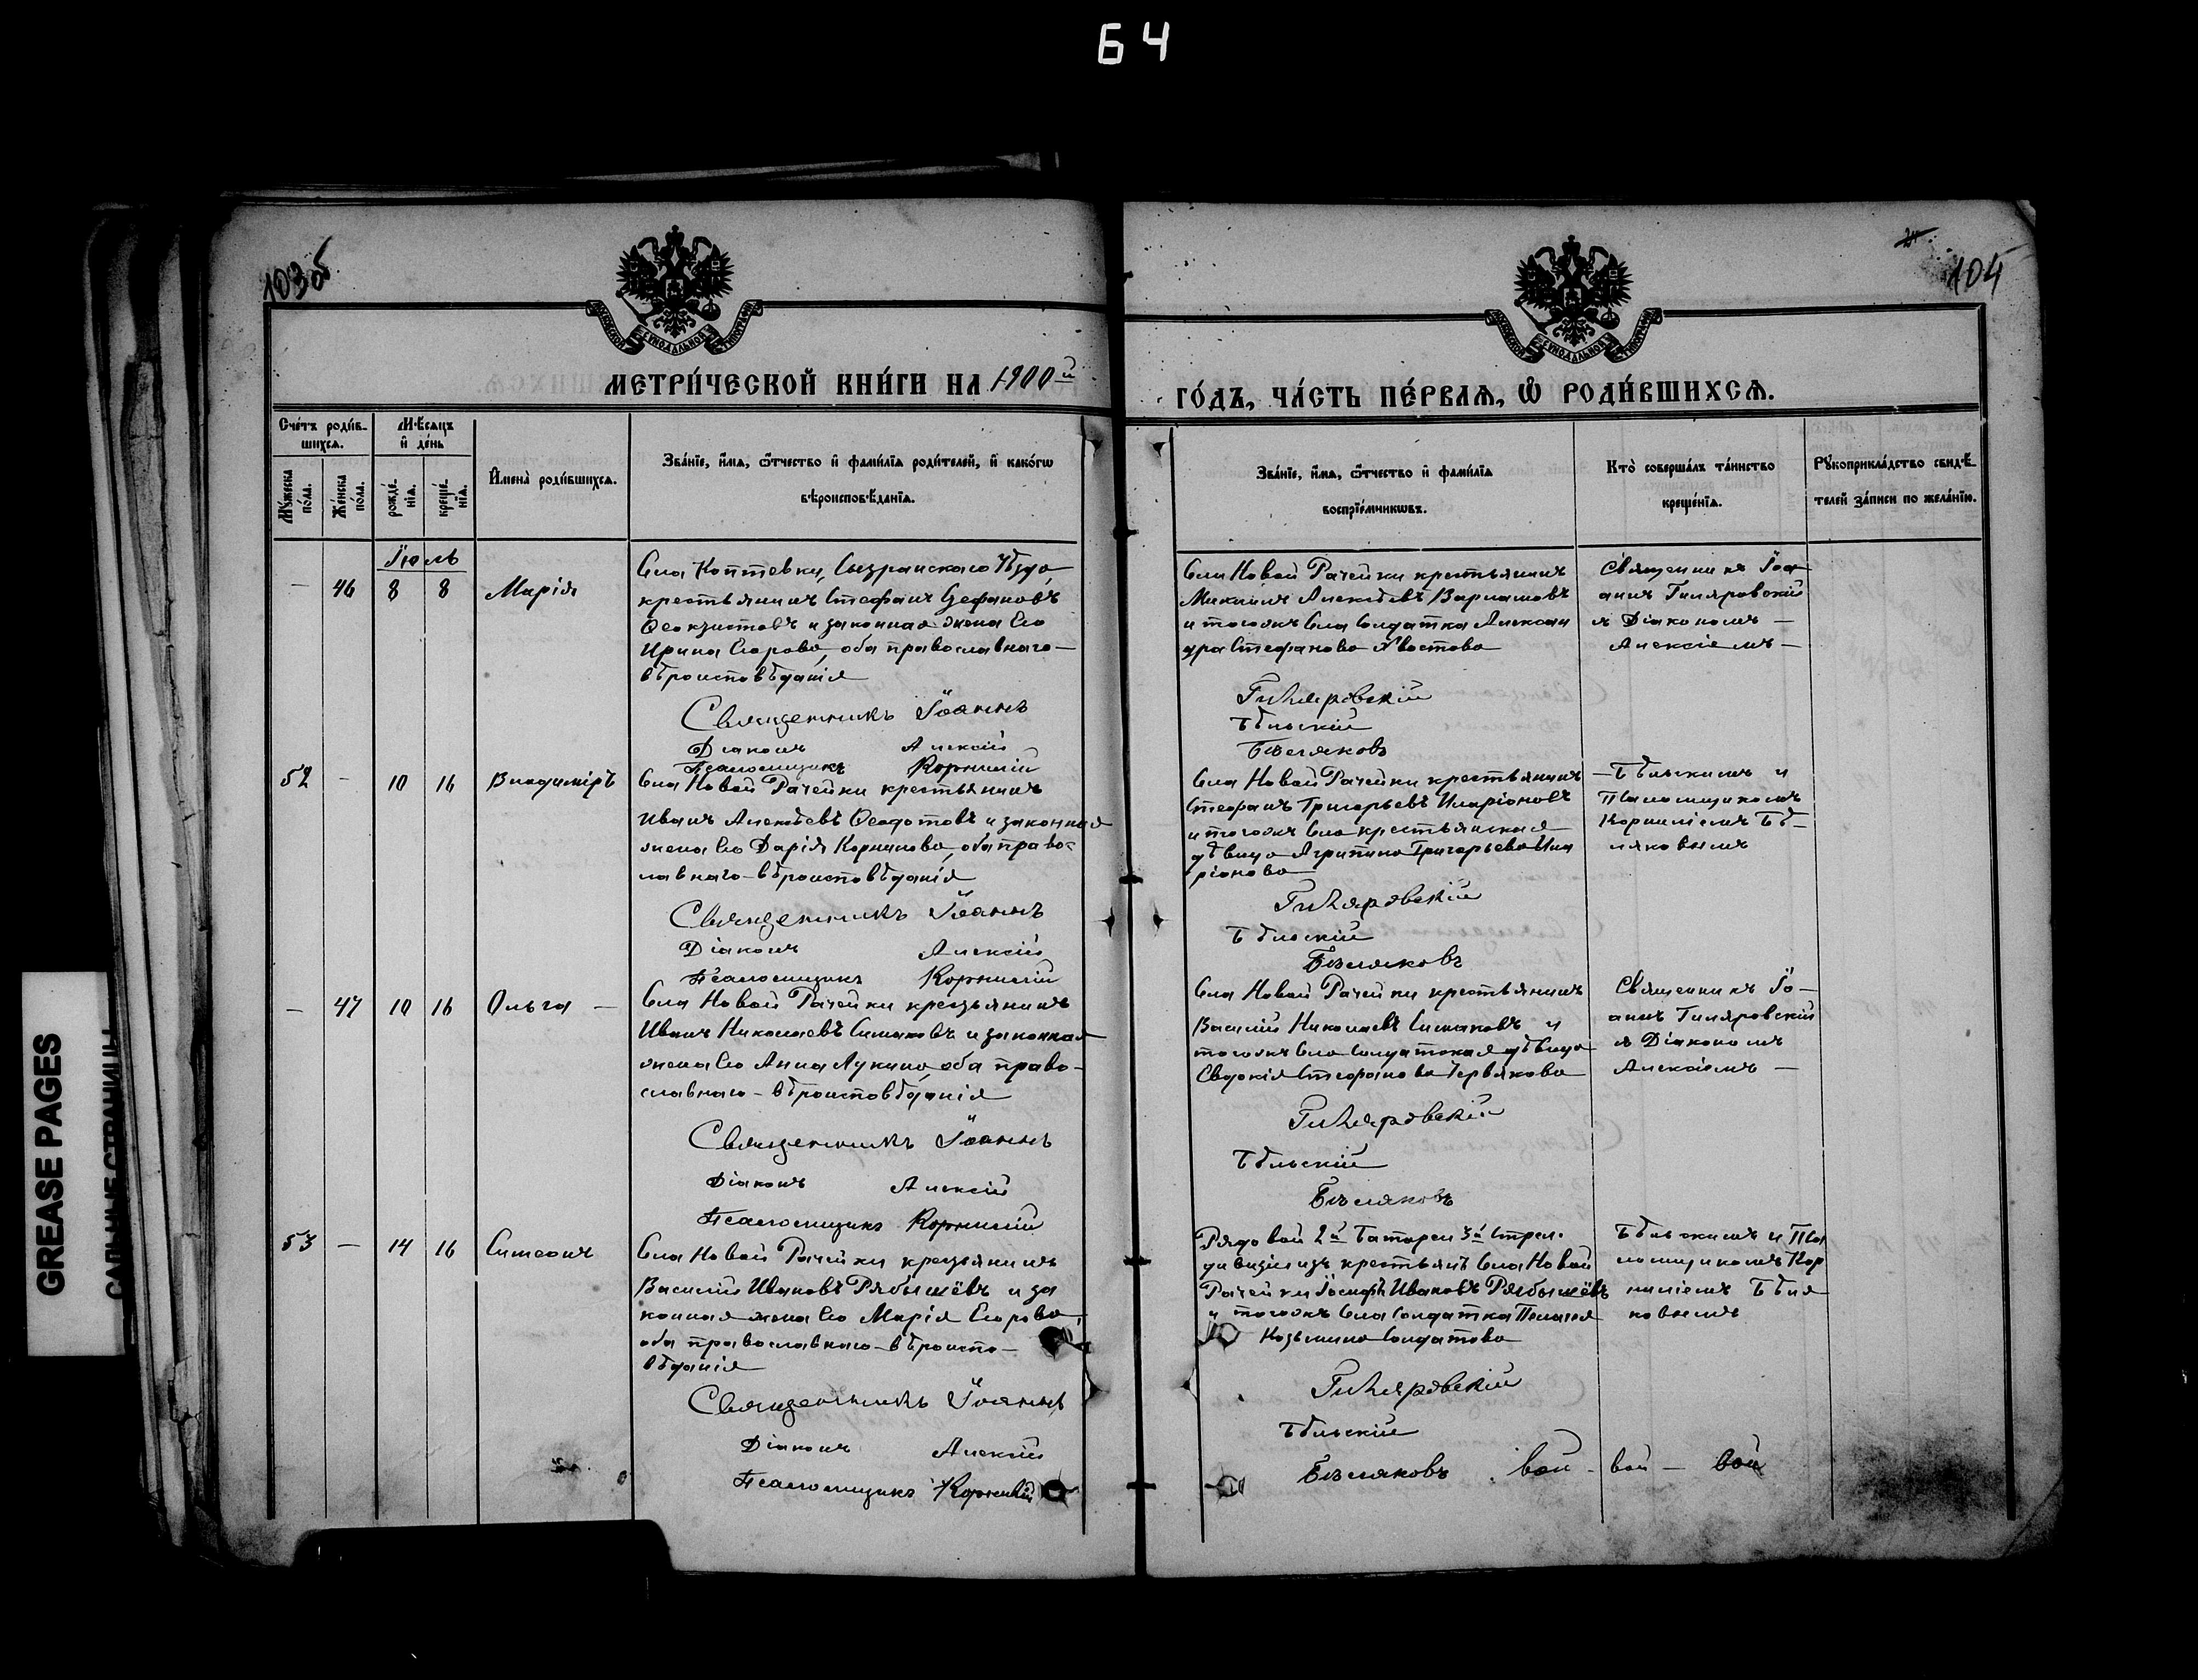 64
103 об
104
МОСКОВСКОЙ СѴНОДАЛЬНОЙ ТИПОГРАФІИ
МОСКОВСКОЙ СѴНОДАЛЬНОЙ ТИПОГРАФІИ
МЕТРИ́ЧЕСКОЙ КНИ́ГИ НА 1900й
ГО́ДЪ, ЧА́СТЬ ПЕ́РВАѦ, Ѡ҆ РОДИ́ВШИХСѦ.
Сче́тъ роди́в-
шихсѧ.
Мѣ́сѧцъ
и҆ де́нь
Мꙋ́жеска
по́ла.
Же́нска
по́ла.
рожде́-
нїѧ.
креще́-
нїѧ.
И҆мена̀ роди́вшихсѧ.
Зва́нїе, и҆́мѧ, ѻ҆́тчество и҆ фами́лїѧ роди́телей, и҆ како́гѡ
вѣроисповѣ́данїѧ.
Зва́нїе, и҆́мѧ, ѻ҆́тчество и҆ фами́лїѧ
воспрїе́мникѡвъ.
Кто̀ соверша́лъ та́инство
креще́нїѧ.
Рꙋкоприкла́дство свидѣ́-
телей за́писи по жела́нїю.
Іюль
— 46 8 8 Марія
Села Коптевки, Сызранскаго Уѣзда,
крестьянинъ Стефанъ Стефановъ
Ѳеоктистовъ и законная жена его
Ирина Егорова, оба православнаго
вѣроисповѣданія
Священникъ Іоаннъ
Діаконъ Алексій
Псаломщикъ Корнилій
Села Новой Рачейки крестьянинъ
Михаилъ Алексѣевъ Варламовъ
и тогожъ села солдатка Алексан
дра Стефанова Хвостова
Гиляровскій
Бѣльскій
Бѣляковъ
Священникъ Іоа
аннъ Гиляровскій
съ Діакономъ —
Алексіемъ —
52 — 10 16 Владиміръ
Села Новой Рачейки крестьянинъ
Иванъ Алексѣевъ Ѳеодотовъ и законная
жена его Дарія Корнилова, оба право-
славнаго вѣроисповѣданія
Священникъ Іоаннъ
Діаконъ Алексій
Псаломщикъ Корнилій
Села Новой Рачейки крестьянинъ
Стефанъ Григорьевъ Иларіоновъ
и тогожъ села крестьянская
дѣвица Агрипина Григорьева Ила
ріонова
Гиляровскій
Бѣльскій
Бѣляковъ
— Бѣльскимъ и
Псаломщикомъ
Корниліемъ Бѣ-
ляковымъ
— 47 10 16 Ольга —
Села Новой Рачейки крестьянинъ
Иванъ Николаевъ Симаковъ и законная
жена его Анна Лукина, оба право-
славнаго - вѣроисповѣданія
Священникъ Іоаннъ
Діаконъ Алексій
Псаломщикъ Корнилій
Села Новой Рачейки крестьянинъ
Василій Николаевъ Симаковъ и
тогожъ села солдатская дѣвица
Евдокія Стефанова Червякова
Гиляровскій
Бѣльскій
Бѣляковъ
Священникъ Іо-
аннъ Гиляровскій
съ Діакономъ
Алексіемъ —
53 — 14 16 Симеонъ
Села Новой Рачейки крестьянинъ
Василій Ивановъ Рябышёвъ и за
конная жена его Марія Егорова,
оба православнаго вѣроиспо-
вѣданія
Священникъ Іоаннъ
Діаконъ Алексій
Псаломщикъ Корнилій
Рядовой 2й батареи 3й Стрел.
дивизіи изъ крестьянъ села Новой
Рачейки Іосифъ Ивановъ Рябышёвъ
и тогожъ села солдатка Пелагія
Козьмина Солдатова
Гиляровскій
Бѣльскій
Бѣляковъ . вой - вой — вой
Бѣльскимъ и Пса
ломщикомъ Кор
ниліемъ Бѣля
ковымъ
GREASE PAGES
САЛЬНЫЕ СТРАНИЦЫ